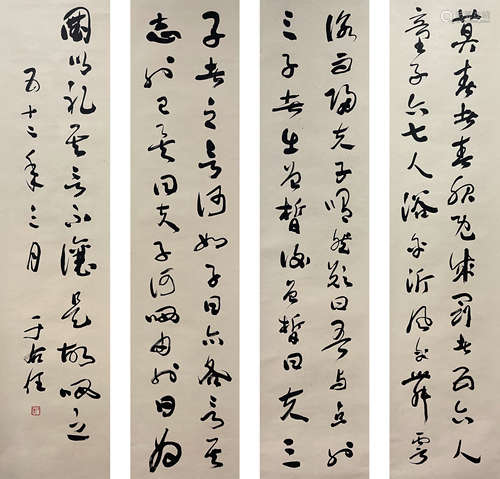 莫春者春服既成冠者五六人
童子六七人浴乎沂風乎舞雩
詠而歸夫子喟然歎曰吾與點也
三子者出曾皙後曾皙曰夫三
子者之言何如子曰亦各言其
志也已矣曰夫子何哂由也曰為
國以禮其言不讓是故哂之
五十二年三月 于右任